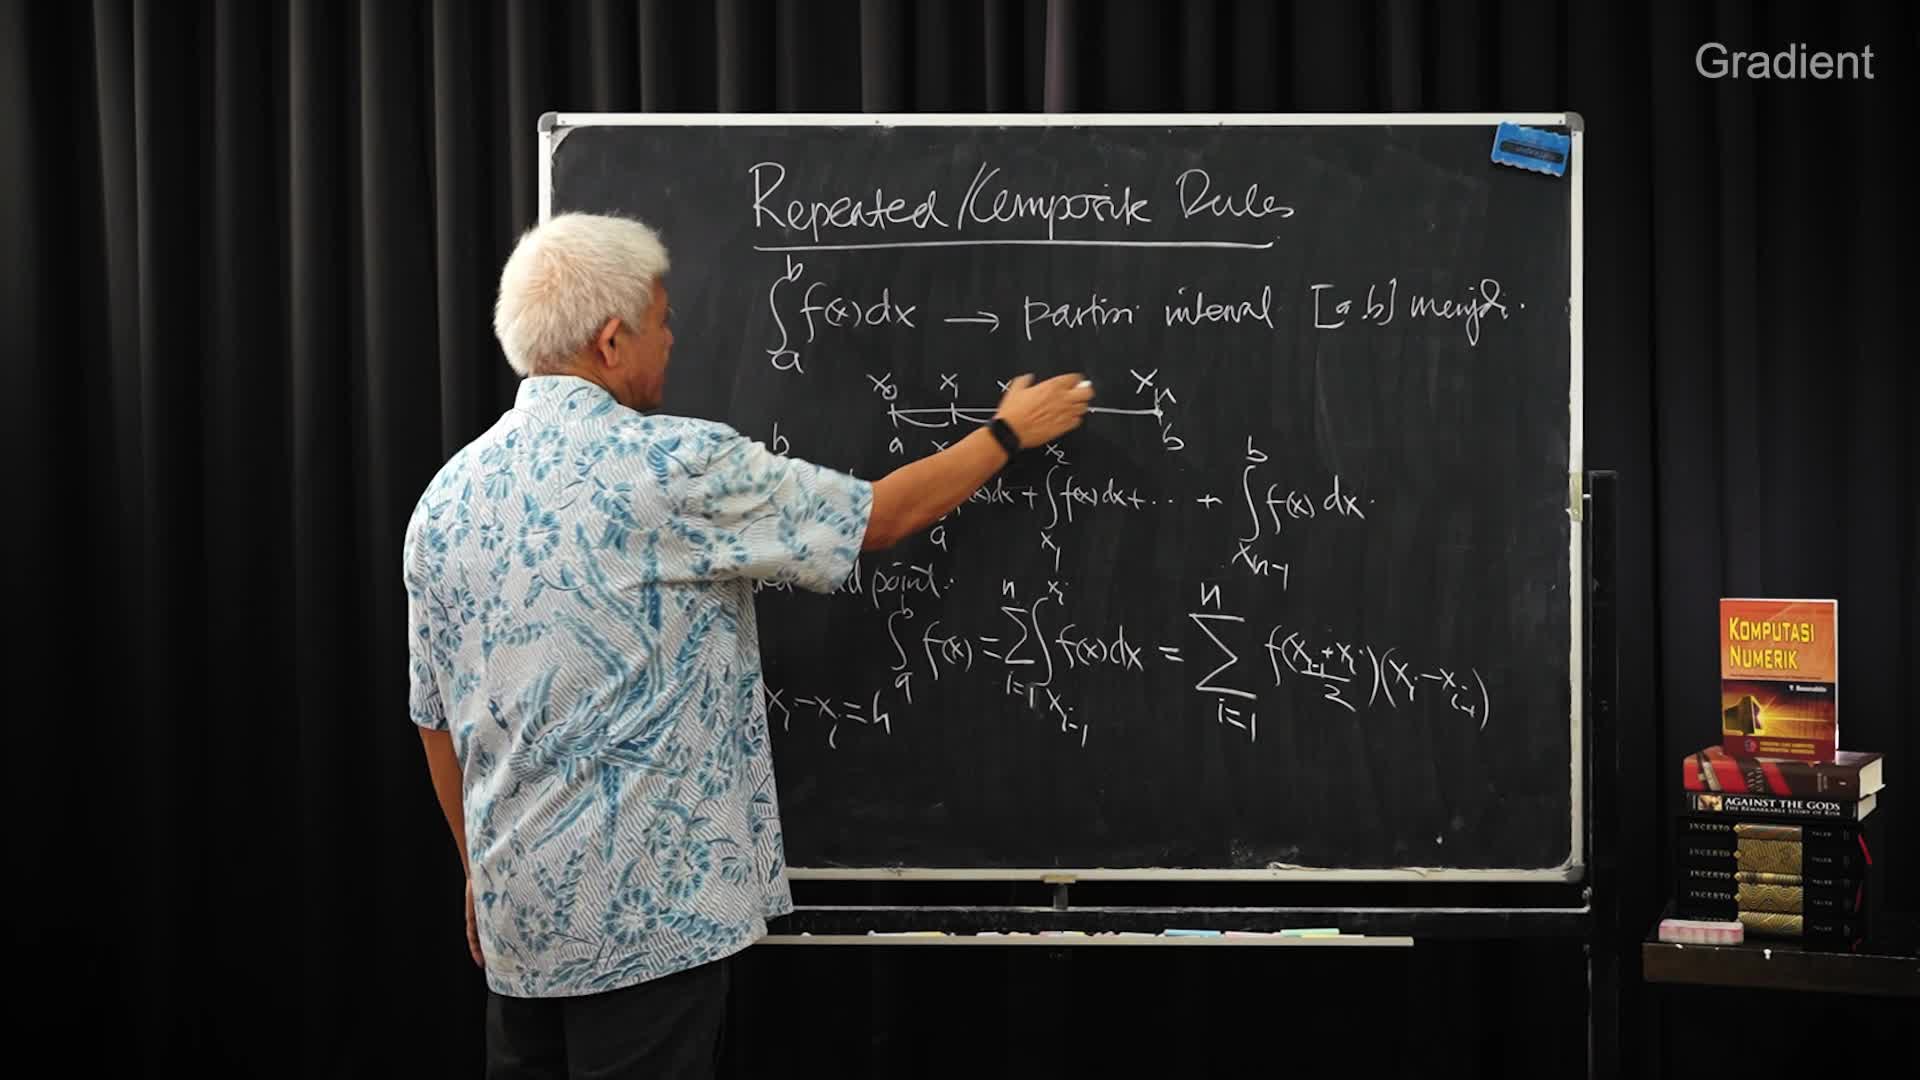 Gradient
Repeated/Composite Rules
∫_a^b f(x)dx → partisi interval [a,b] menjadi.
x_0 x_1 x_n
a b
b
a
dx + ∫_{x_1}^{x_2} f(x)dx + ... + ∫_{x_{n-1}}^b f(x)dx.
point:
∫_a^b f(x) = Σ_{i=1}^n ∫_{x_{i-1}}^{x_i} f(x)dx = Σ_{i=1}^n f((x_{i-1}+x_i)/2)(x_i-x_{i-1})
x_i-x_i=h
KOMPUTASI
NUMERIK
AGAINST THE GODS
THE REMARKABLE STORY OF RISK
INCERTO TALEB
INCERTO TALEB
INCERTO TALEB
INCERTO TALEB
INCERTO TALEB